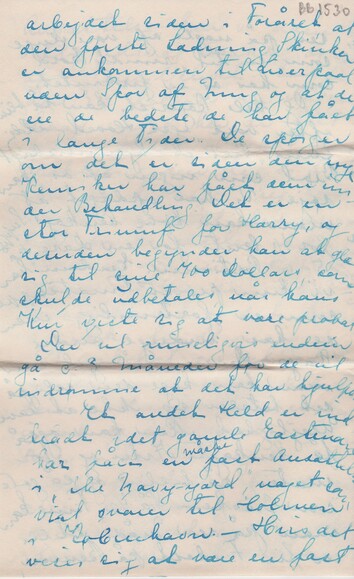 BB1530
arbejdet siden i Foråret at
den første Ladning Skinker
er ankommen til Liverpool
uden Spor af Smag og at de
ere de bedste de har fået
i lange Tider. De spørger
om det er siden den nye
Kemiker har fået dem under
der Behandling. Det er en
stor Triumf for Harry, og
desuden begynder han at glæde
sig til sine 700 Dollars som
skulde udbetales når hans
Kur viste sig at være probat
Der vil rimeligvis endnu
gå 2-3 Måneder før de vil
indrømme at det har hjulpet
Et andet Held er ind
i det gamle
har fået en måske fast Ansættelse
i the Navy-yard noget som
vist svarer til Holmen
i København. - Hvis det
viser sig at være en fast